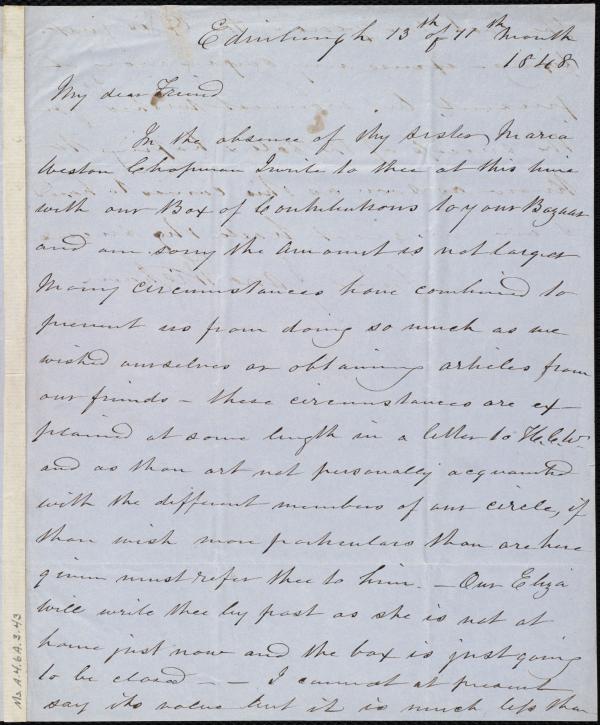 Edinburgh 13th of 11th Month
1848
My dear Friend
In the absence of thy sister Maria
Weston Chapman I write to thee at this time
with our Box of Contributions to your Bazaar
and am sorry the amount is not larger
Many circumstances have combined to
prevent us from doing so much as we
wished ourselves or obtaining articles from
our friends – these circumstances are ex-
plained at some length in a letter to H.C.W.
and as thou art not personally acquainted
with the different members of our circle, if
thou wish more particulars than are here
given must refer thee to him. – Our Eliza
will write thee by post as she is not at
home just now and the box is just going
to be closed – – I cannot at present
say its value but it is much less than
Ms. A.4.6A.3.43